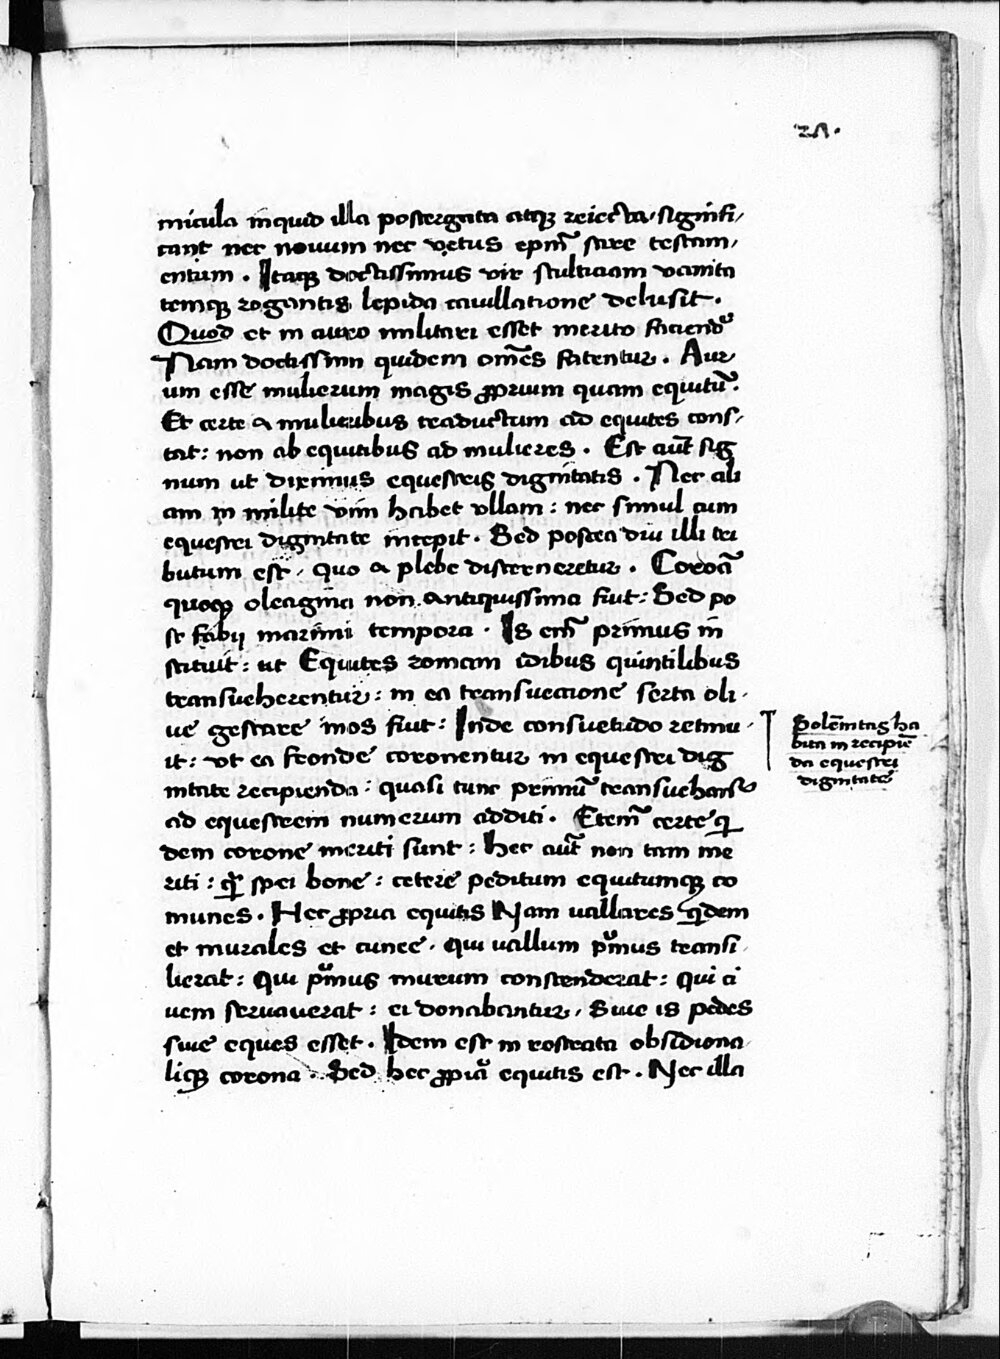 21.
micula inquid illa postergata atqꝫ reiecta, signifi,
cant nec nouum nec vetus epm̄ scire testam,
entum . Itaqꝫ doctissimus vir stulticiam vanita
temqꝫ rogantis lepida cauillatione delusit .
Quod et in auro militari esset merito faciend᷑
Nam doctissimi quidem om̄es fatentur . Aur
um esse mulierum magis ꝓprium quam equitū .
Et certe a mulieribus traductum ad equites cons,
tat : non ab equitibus ad mulieres . Est aut̄ sig
num ut diximus equestris dignitatis . Nec ali
am in milite vim habet vllam : nec simul cum
equestri dignitate incepit . Sed postea diu illi tri
butum est , quo a plebe discerneretur . Coronā
quoqꝫ oleagina non antiquissima fuit : Sed po
st fabij maximi tempora . Is em̄ primus in
stituit : ut Equites romam idibus quintilibus
transueherentur : in ea transuectione serta oli ,
ue gestare mos fuit : Inde consuetudo retinu ,
it : vt ea fronde coronentur in equestri dig
nitate recipienda : quasi tunc primū transuehant᷑
ad equestrem numerum additi . Etem̄ certe q̄
dem corone meriti sunt : hec aut̄ non tam me
riti : q̄ spei bone : cetere peditum equitumqꝫ co
munes . Hec ꝓpria equitis Nam vallares q̄dem
et murales et ciuice . Qui vallum pͥmus transi ,
lierat : Qui pͥmus murum conscenderat : Qui ci
uem seruauerat : ei donabantur , Siue is pedes
siue eques esset . Idem est in rostrata obsidiona ,
liqꝫ corona . Sed hec ꝓpiͣa equitis est . Nec illa
Solēnitas ha
bita in recipiē
da equestri
dignitate